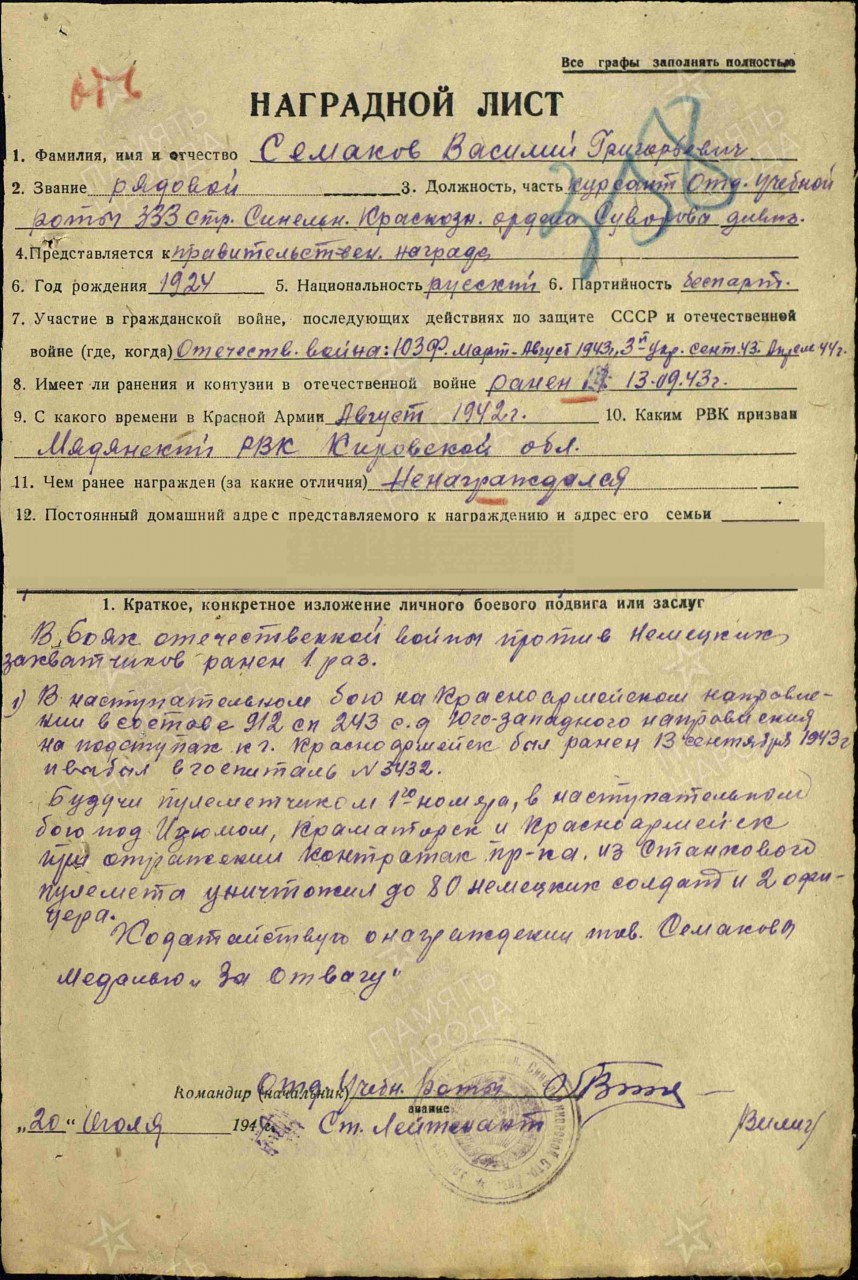 Все графы заполнять полностью
238
НАГРАДНОЙ ЛИСТ
1. Фамилия, имя и отчество Семаков Василий Григорьевич
2. Звание рядовой 3. Должность, часть курсант Отд. Учебной
роты 333 стр. Синельн. Краснозн. ордена Суворова дивиз.
4. Представляется к правительствен. награде
6. Год рождения 1924 5. Национальность русский 6. Партийность беспарт.
7. Участие в гражданской войне, последующих действиях по защите СССР и отечественной
войне (где, когда) Отечеств. война: ЮЗФ. Март-Август 1943г, 3й Укр. сент. 43. Апрель 44г.
8. Имеет ли ранения и контузии в отечественной войне ранен 13.09.43г.
9. С какого времени в Красной Армии Август 1942г. 10. Каким РВК призван
Мядянский РВК Кировской обл.
11. Чем ранее награжден (за какие отличия) Ненаграждался
12. Постоянный домашний адрес представляемого к награждению и адрес его семьи
1. Краткое, конкретное изложение личного боевого подвига или заслуг
В боях отечественной войны против немецких
захватчиков ранен 1 раз.
1) В наступательном бою на Красноармейском направле-
нии в составе 912 сп 243 с.д Юго-западного направления
на подступах к г. Красноармейск был ранен 13 сентября 1943г
и выбыл в госпиталь N 3432.
Будучи пулеметчиком 1го номера, в наступательном
бою под Изюмом, Краматорск и Красноармейск
при отражении контратак пр-ка, из Станкового
пулемета уничтожил до 80 немецких солдат и 2 офи-
цера.
Ходатайствую о награждении тов. Семакова
Медалью "За Отвагу"
Командир (начальник) Отд. Учебн. Роты
звание
"20" Июля 194 Ст. Лейтенант /Вилиг/
ПАМЯТЬ
НАРОДА